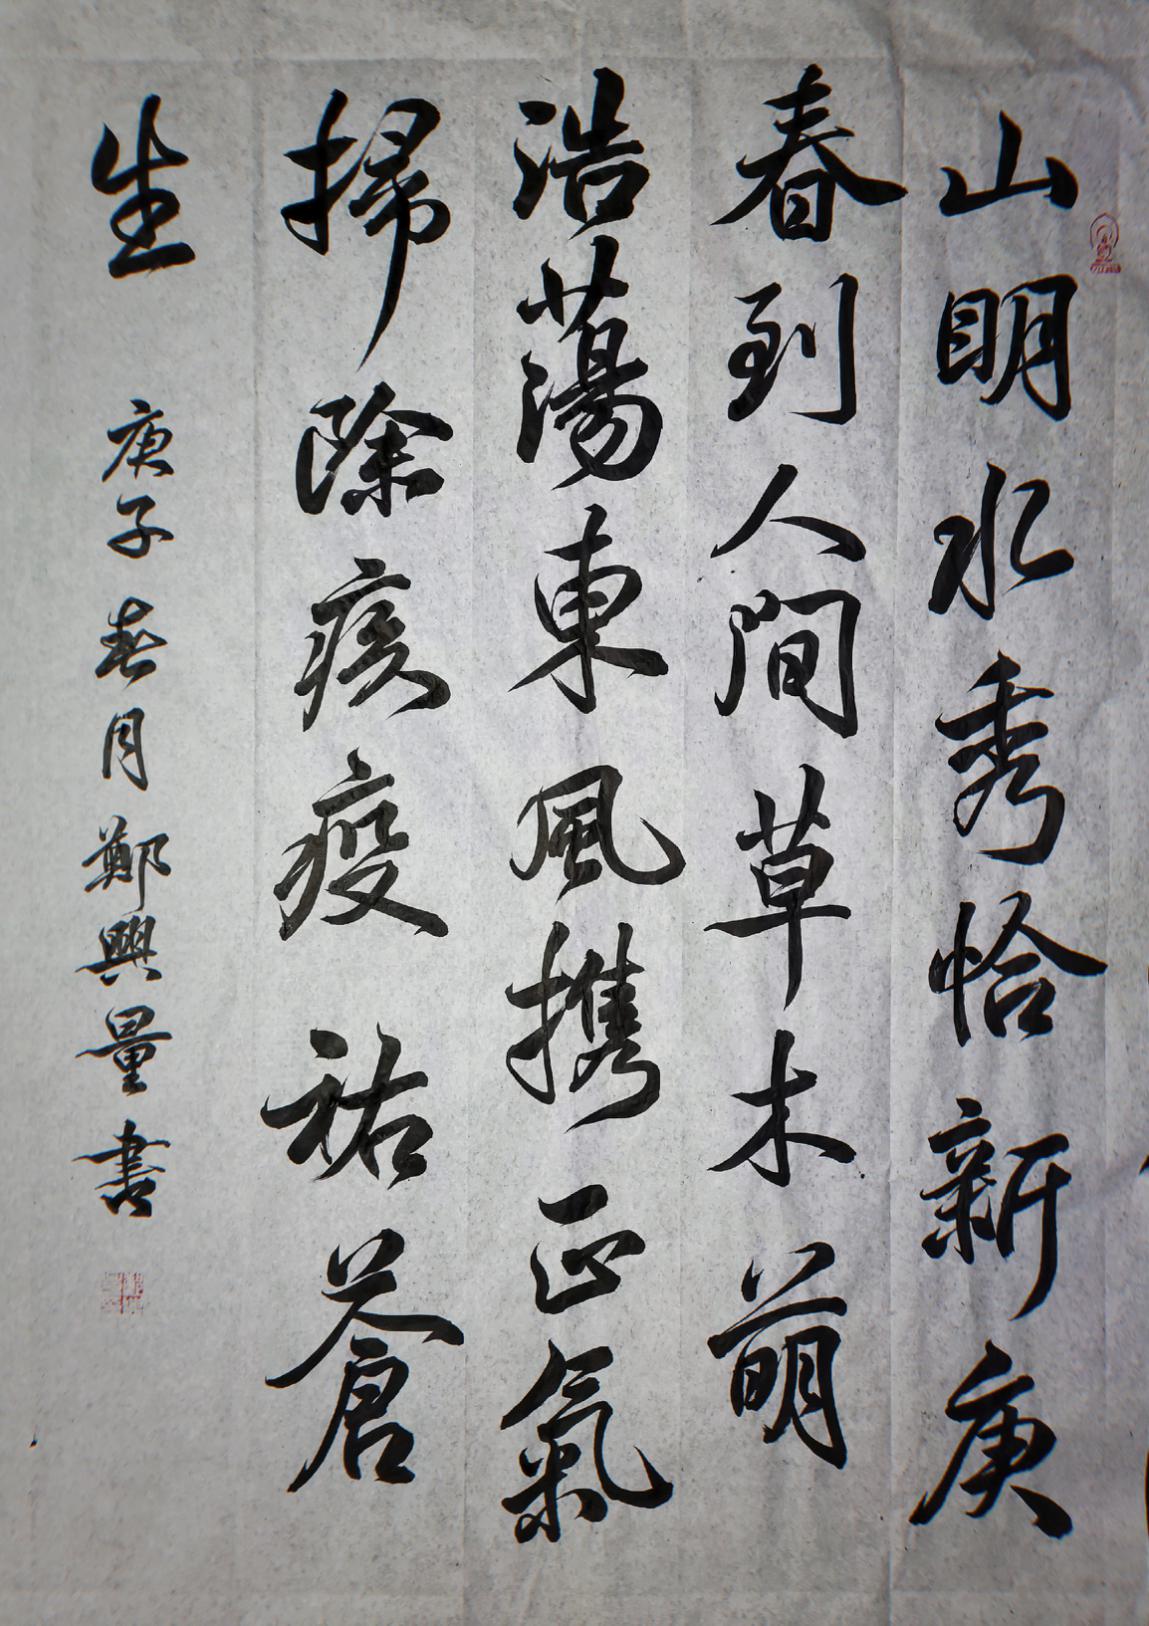 山明水秀恰新庚
春到人間草木萌
浩蕩東風携正氣
掃除疾疫祐蒼
生
庚子春月鄭興量書